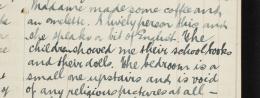 Madame made some coffee and
an omelette. A lively person this and
she speaks a bit of English. The
children showed me their school books
and their dolls. The bedroom is a
small one upstairs and is void
of any religious pictures at all —